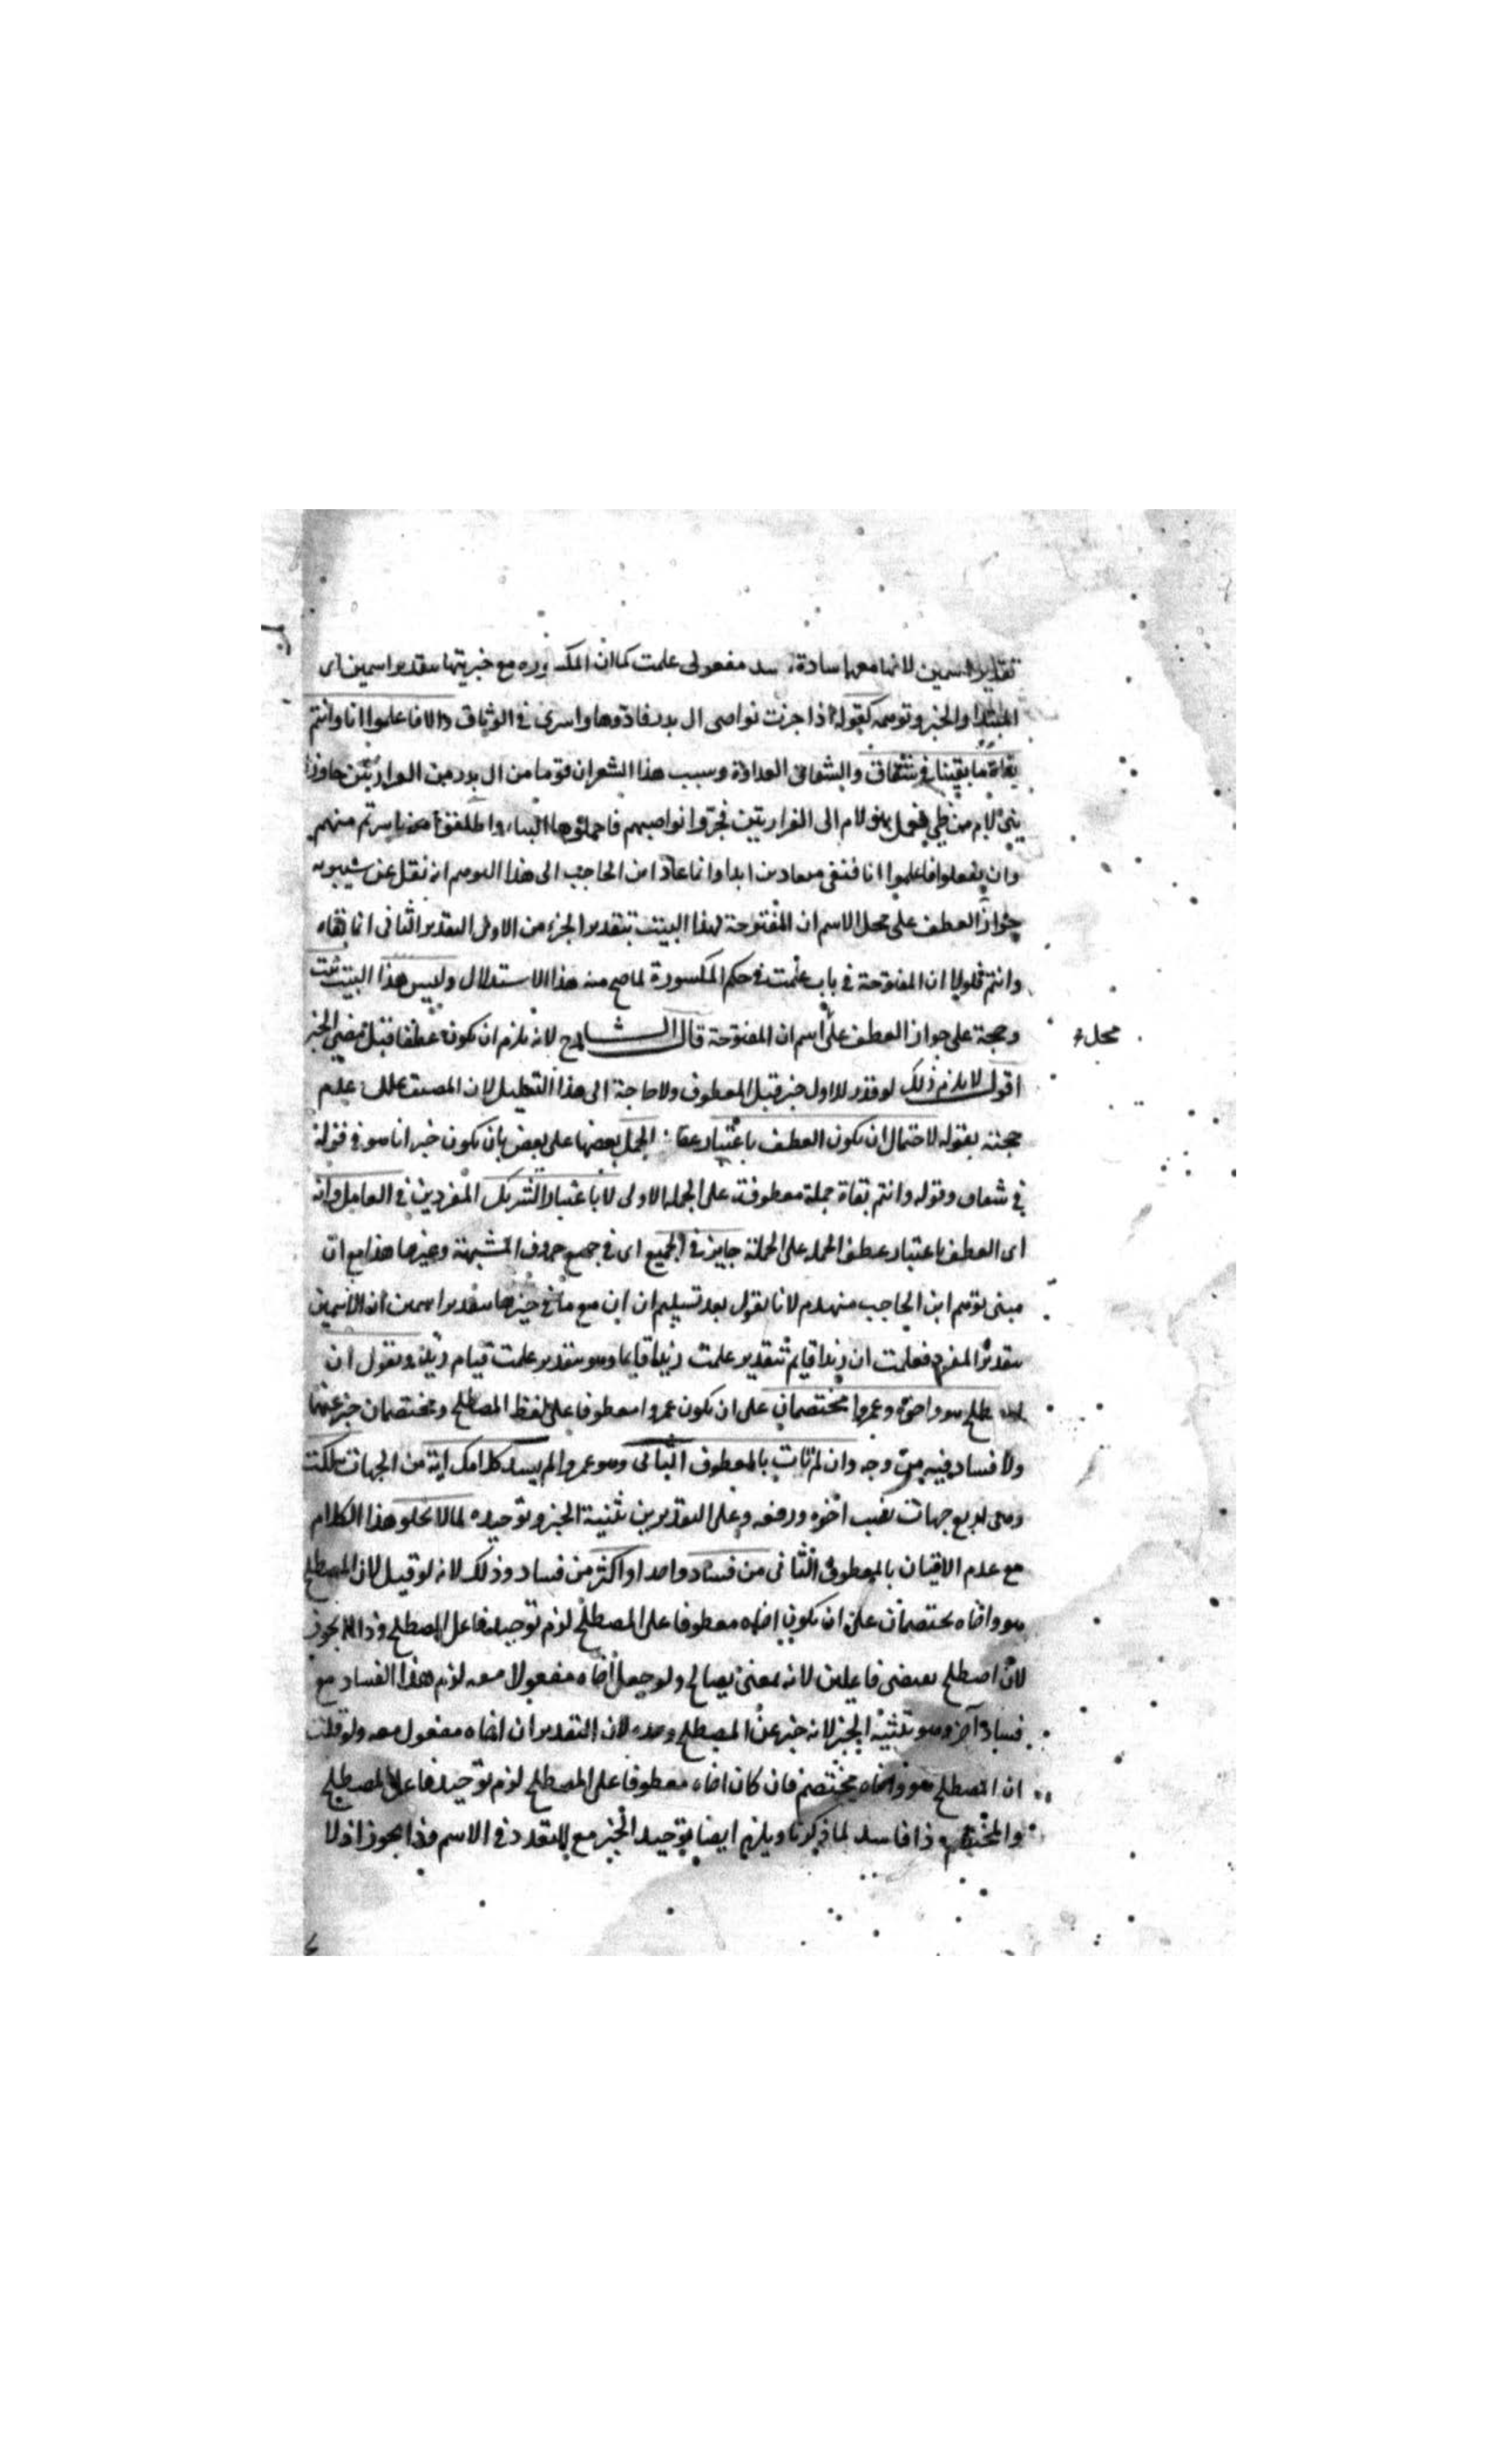 بتقدير اسمين لانها معها سادة مسد مفعولى علمت كما ان المكسورة مع خبريتها بتقدير اسمين اى
المبتدا والخبر وتوهمه كقوله اذا جزت نواصى ال بدر فادوها واسرى فى الوثاق والا فاعلموا انا وانتم
بغاة ما بقينا فى شقاق والشقاق العداوة وسبب هذا الشعر ان قوما من ال بدر من الفزاريين جاوروا
بنى لام من طى بنو لام الى الفزاريين فجزوا نواصيهم فاحملوها الينا واطلقوا من اسرتم منهم
وان تفعلوا فاعلموا انا فنبقى متعادين ابدا وانما عاد ابن الحاجب الى هذا التوهم انه نقل عن سيبويه
جواز العطف على محل الاسم ان المفتوحة لهذا البيت بتقدير الخبر من الاول التقدير الثانى انا بغاة
وانتم فلولا ان المفتوحة فى باب علمت فى حكم المكسورة لما صح منه هذا الاستدلال وليس هذا البيت ثبت
وحجة على جواز العطف على اسم ان المفتوحة قال الشارح لانه يلزم ان يكون عطفا قبل مضى الخبر
محلا
اقول لا يلزم ذلك لو قدر للاول خبر قبل المعطوف ولا حاجة الى هذا التعليل لان المصنف علل عدم
حجته بقوله لاحتمال ان يكون العطف باعتبار عطف الجمل بعضها على بعض بان يكون خبر انا هو فى قوله
فى شقاق وقوله وانتم بغاة جملة معطوفة على الجملة الاولى لا باعتبار التشريك المفردين فى العامل وانه
اى العطف باعتبار عطف الجملة على الجملة جايز فى الجميع اى فى جميع حروف المشبهة وغيرها هذا مع ان
مبنى توهم ابن الحاجب منهدم لانا نقول بعد تسليم ان ان مع ما فى حيزها بتقدير اسمين ان الاسمين
بتقدير المفرد فعلمت ان زيدا قايم بتقدير علمت زيدا قايما وهو بتقدير علمت قيام زيد ونقول ان
المصطلح هو واخوه وعمروا مختصمان على ان يكون عمروا معطوفا على لفظ المصطلح ومختصمان خبر عنهما
ولا فساد فيه من وجه وان لم تات بالمعطوف الثانى وهو عمروا لم يسد كلامك اية من الجهات سلكت
وهى اربع جهات نصب اخوه ورفعه وعلى التقديرين تثنية الخبر وتوحيده لما لا يخلو هذا الكلام
مع عدم الاتيان بالمعطوف الثانى من فساد واحد او اكثر من فساد وذلك لانه لو قيل لان المصطلح
هو واخاه مختصمان على ان يكون اخاه معطوفا على المصطلح لزم توحيد فاعل المصطلح وذا لا يجوز
لان اصطلح يقتضى فاعلين لانه بمعنى يصالح ولو جعل اخاه مفعولا معه لزم هذا الفساد مع
فساد آخر وهو تثنية الخبر لانه خبر عن المصطلح وحده لان التقدير ان اخاه مفعول معه ولو قلت
ان المصطلح هو واخاه مختصم فان كان اخاه معطوفا على المصطلح لزم توحيد فاعل المصطلح
والمختصم وذا فاسد لما ذكرنا ويلزم ايضا توحيد الخبر مع التعدد فى الاسم وذا يجوز اذ لا